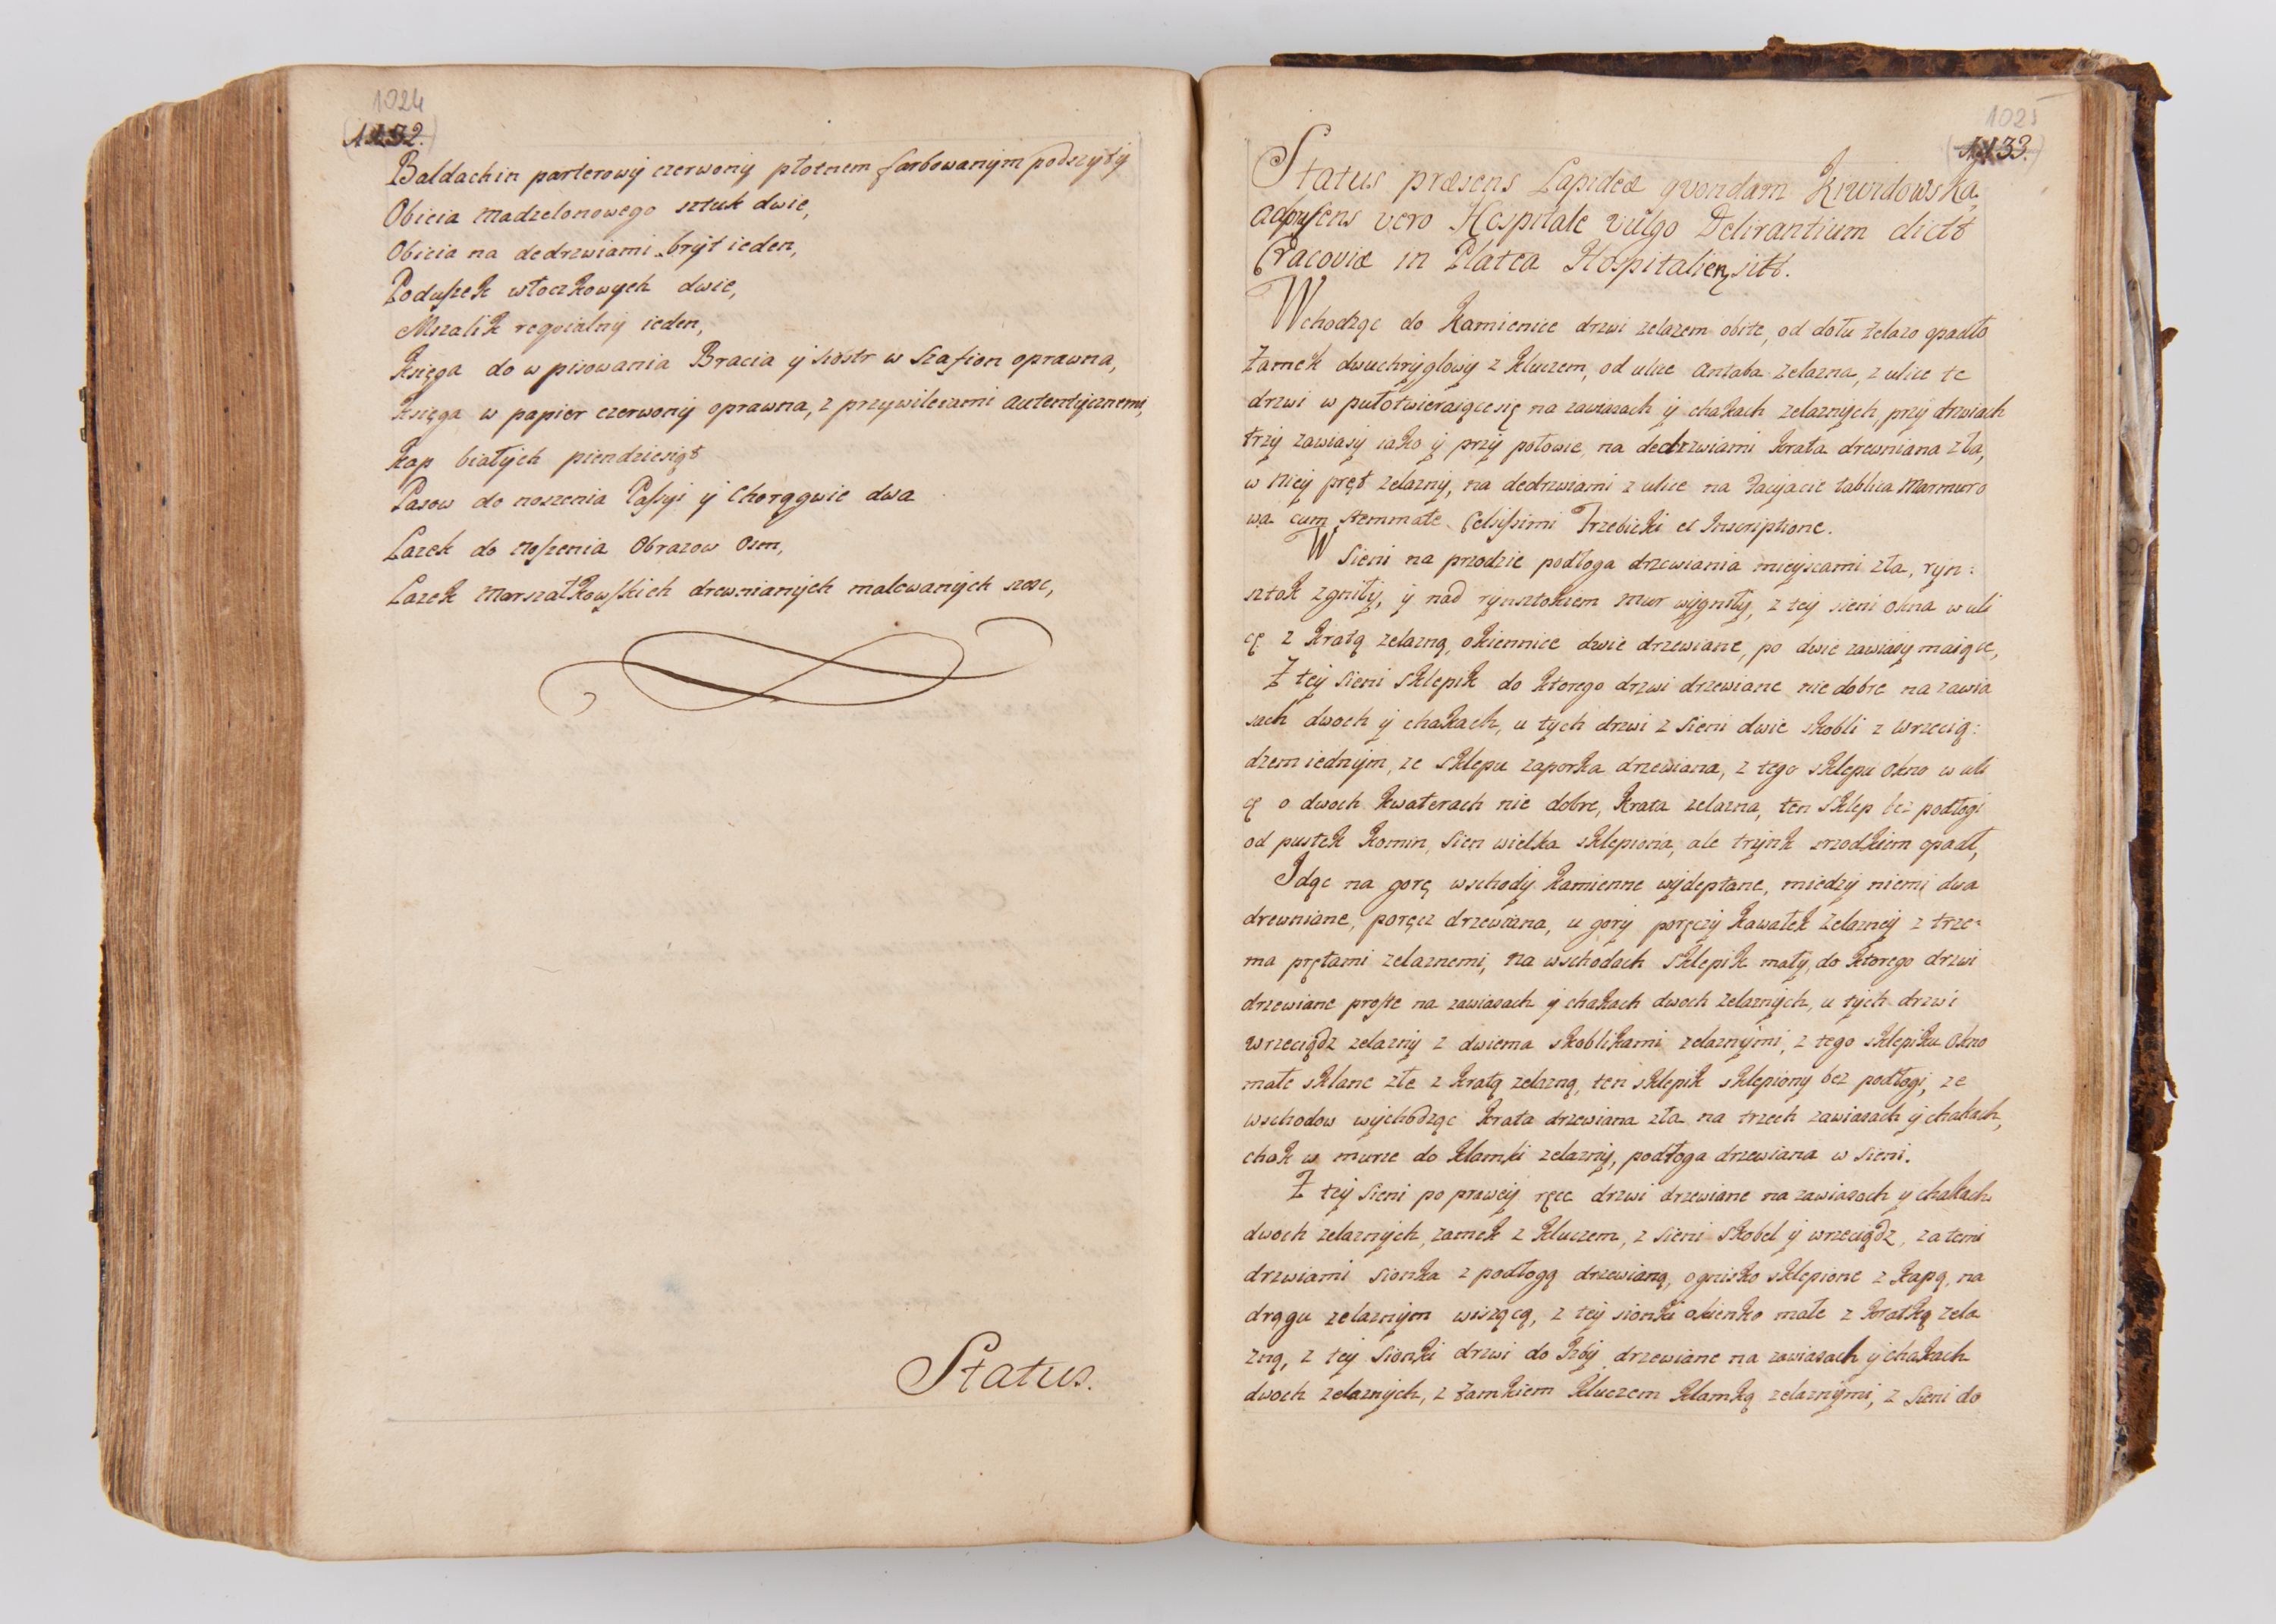 1024
1132.
Baldachin parterowy czerwony płotnem farbowanym podszyty
Obicia madzelonowego sztuk dwie,
Obicia na dedrzwiami bryt ieden,
Poduszek włoczkowych dwie,
Mszalik regvialny ieden,
Księga do wpisowania Bracia y siostr w Szafion oprawna,
Księga w papier czerwony oprawna, z przywileiami autentycznemi,
Kap białych piendziesiąt
Pasow do noszenia Passyi y Chorągwie dwa
Lazek do noszenia Obrazow Osm,
Lazek Marszałkowskich drewnianych malowanych szesc,
Status.
1025
1133.
Status præsens Lapideæ qvondam Kiwidowska,
adpræsens vero Hospitale vulgo Delirantium dictt
Cracoviæ in Platea Hospitalien sitt.
Wchodząc do Kamienice drzwi zelazem obite, od dołu żelazo opadło
Zamek dwuchryglowy z kluczem, od ulice Antaba zelazna, z ulice te
drzwi w pułotwieraiącesię na zawiasach y chakach zelaznych, przy drzwiach
trzy zawiasy iako y przy połowie, na dedrzwiami krata drewniana zła,
w niey pręt zelazny, na dedrzwiami z ulice na Facyacie tablica Marmuro
wa cum stemmate Celsissimi Trzebicki et Inscriptione.
W Sieni na przodzie podłoga drzewiania mieyscami zła, ryn:
sztok zgniły, y nad rynsztokiem mur wygniły, z tey sieni okna w uli
cę z kratą zelazną, okiennice dwie drzewiane, po dwie zawiasy maiące,
Z tey Sieni Sklepik do ktorego drzwi drzewiane nie dobre na zawia
sach dwoch y chakach, u tych drzwi z Sieni dwie skobli z wrzecią:
dzem iednym, ze sklepu zaporka drzewiana, z tego sklepu okno w uli
cę o dwoch kwaterach nie dobre, krata zelazna, ten Sklep bez podłogi
od pustek komin, Sien wielka sklepiona, ale trynk srzodkiem opadł,
Idąc na gorę wschody kamienne wydeptane, miedzy niemi dwa
drewniane, poręcz drzewiana, u gory poręczy kawałek zelazney z trze-
ma prętami zelaznemi, na wschodach Sklepik mały, do ktorego drzwi
drzewiane proste na zawiasach y chakach dwoch zelaznych, u tych drzwi
wrzeciądz zelazny z dwiema skoblikami zelaznymi, z tego sklepiku Okno
małe sklane złe z kratą zelazną, ten sklepik sklepiony bez podłogi, ze
wschodow wychodząc krata drzewiana zła na trzech zawiasach y chakach,
chak w murze do klamki zelazny, podłoga drzewiana w Sieni.
Z tey Sieni po prawey ręce drzwi drzewiane na zawiasach y chakach
dwoch zelaznych, zamek z kluczem, z Sieni Skobel y wrzeciądz, za temi
drzwiami sionka z podłogą drzewianą, ognisko sklepione z kapą, na
drągu zelaznym wiszącą, z tey sionki okienko małe z kratką zela
zną, z tey Sionki drzwi do Izby drzewiane na zawiasach y chakach
dwoch zelaznych, z zamkiem kluczem klamką zelaznymi, z Sieni do